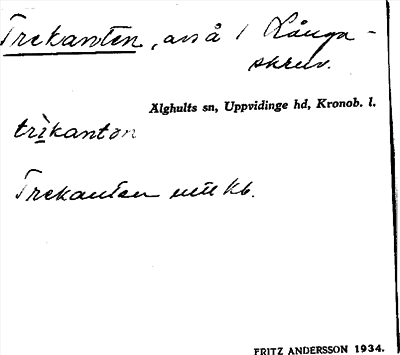 Trekanten, avs å / Långa-
skruv.
Älghults sn, Uppvidinge hd, Kronob. l.
trìkantən
Trekanten kb.
FRITZ ANDERSSON 1934.